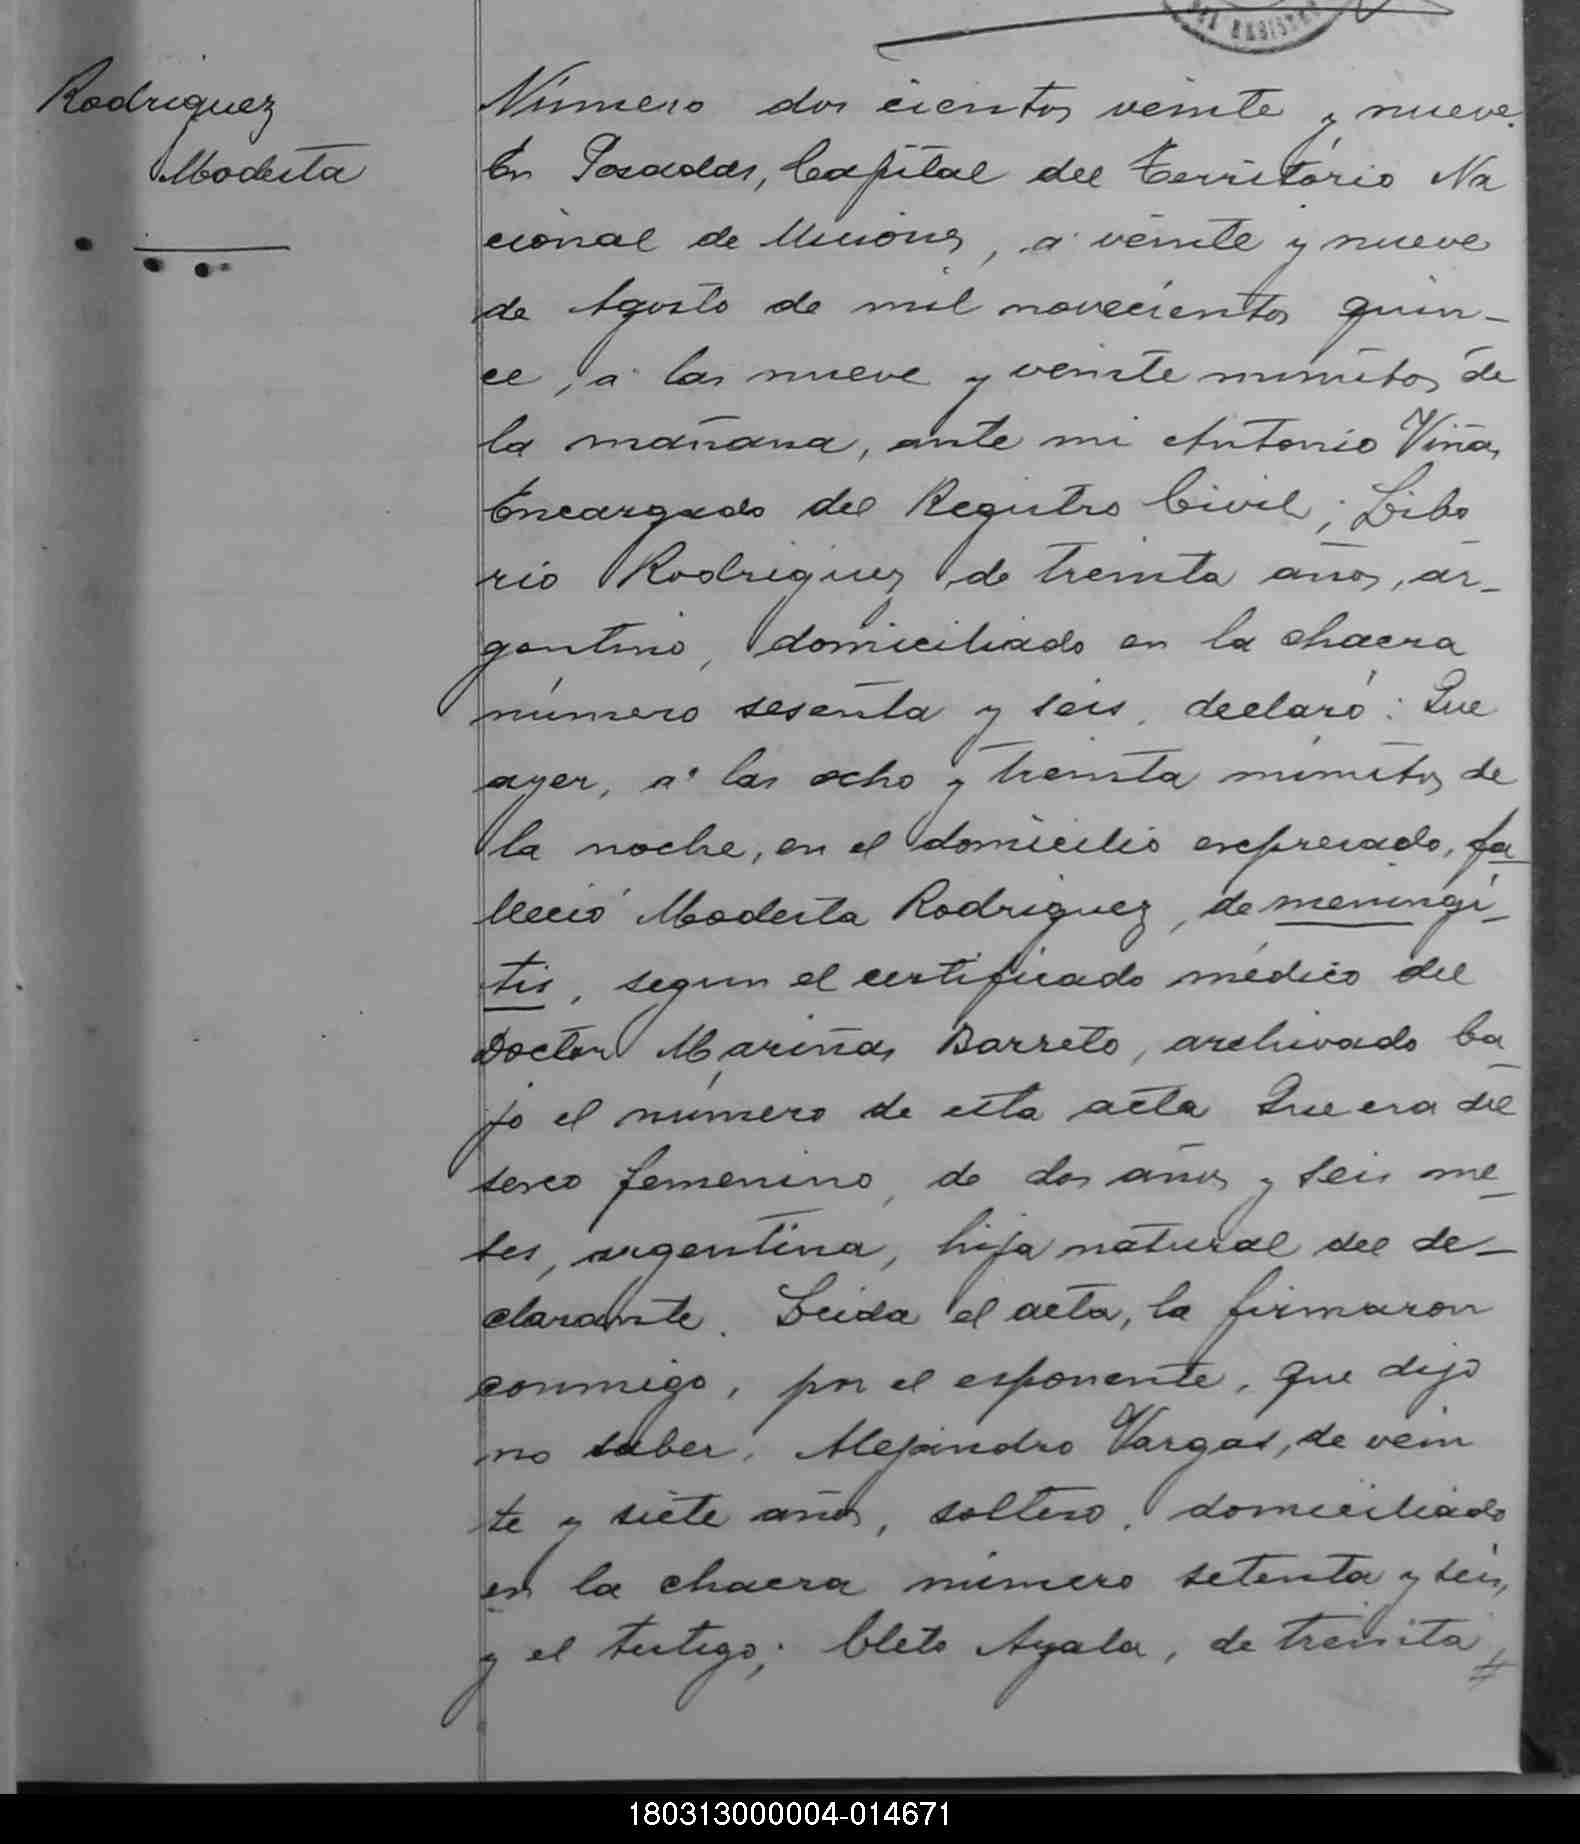 DEL REGISTRO
Rodriguez
Modesta
Número dos cientos veinte y nueve.
En Posadas, Capital del Territorio Na
cional de Misiones, a veinte y nueve
de Agosto de mil novecientos quin-
ce, a las nueve y veinte minutos de
la mañana, ante mi Antonio Viñas
Encargado del Registro Civil; Libo
rio Rodriguez, de treinta años, ar-
gentino, domiciliado en la chacra
número sesenta y seis, declaró: Que
ayer, a las ocho y treinta minutos de
la noche, en el domicilio expresado, fa
lleció Modesta Rodriguez, de meningi-
tis, segun el certificado médico del
Doctor Mariñas Barreto, archivado ba
jo el número de esta acta Que era del
sexo femenino, de dos años y seis me
ses, argentina, hija natural del de-
clarante. Leida el acta, la firmaron
conmigo, por el esponente, que dijo
no saber, Alejandro Vargas, de vein
te y siete años, soltero, domiciliado
en la chacra número setenta y seis,
y el testigo; Cleto Ayala, de treinta #
180313000004-014671